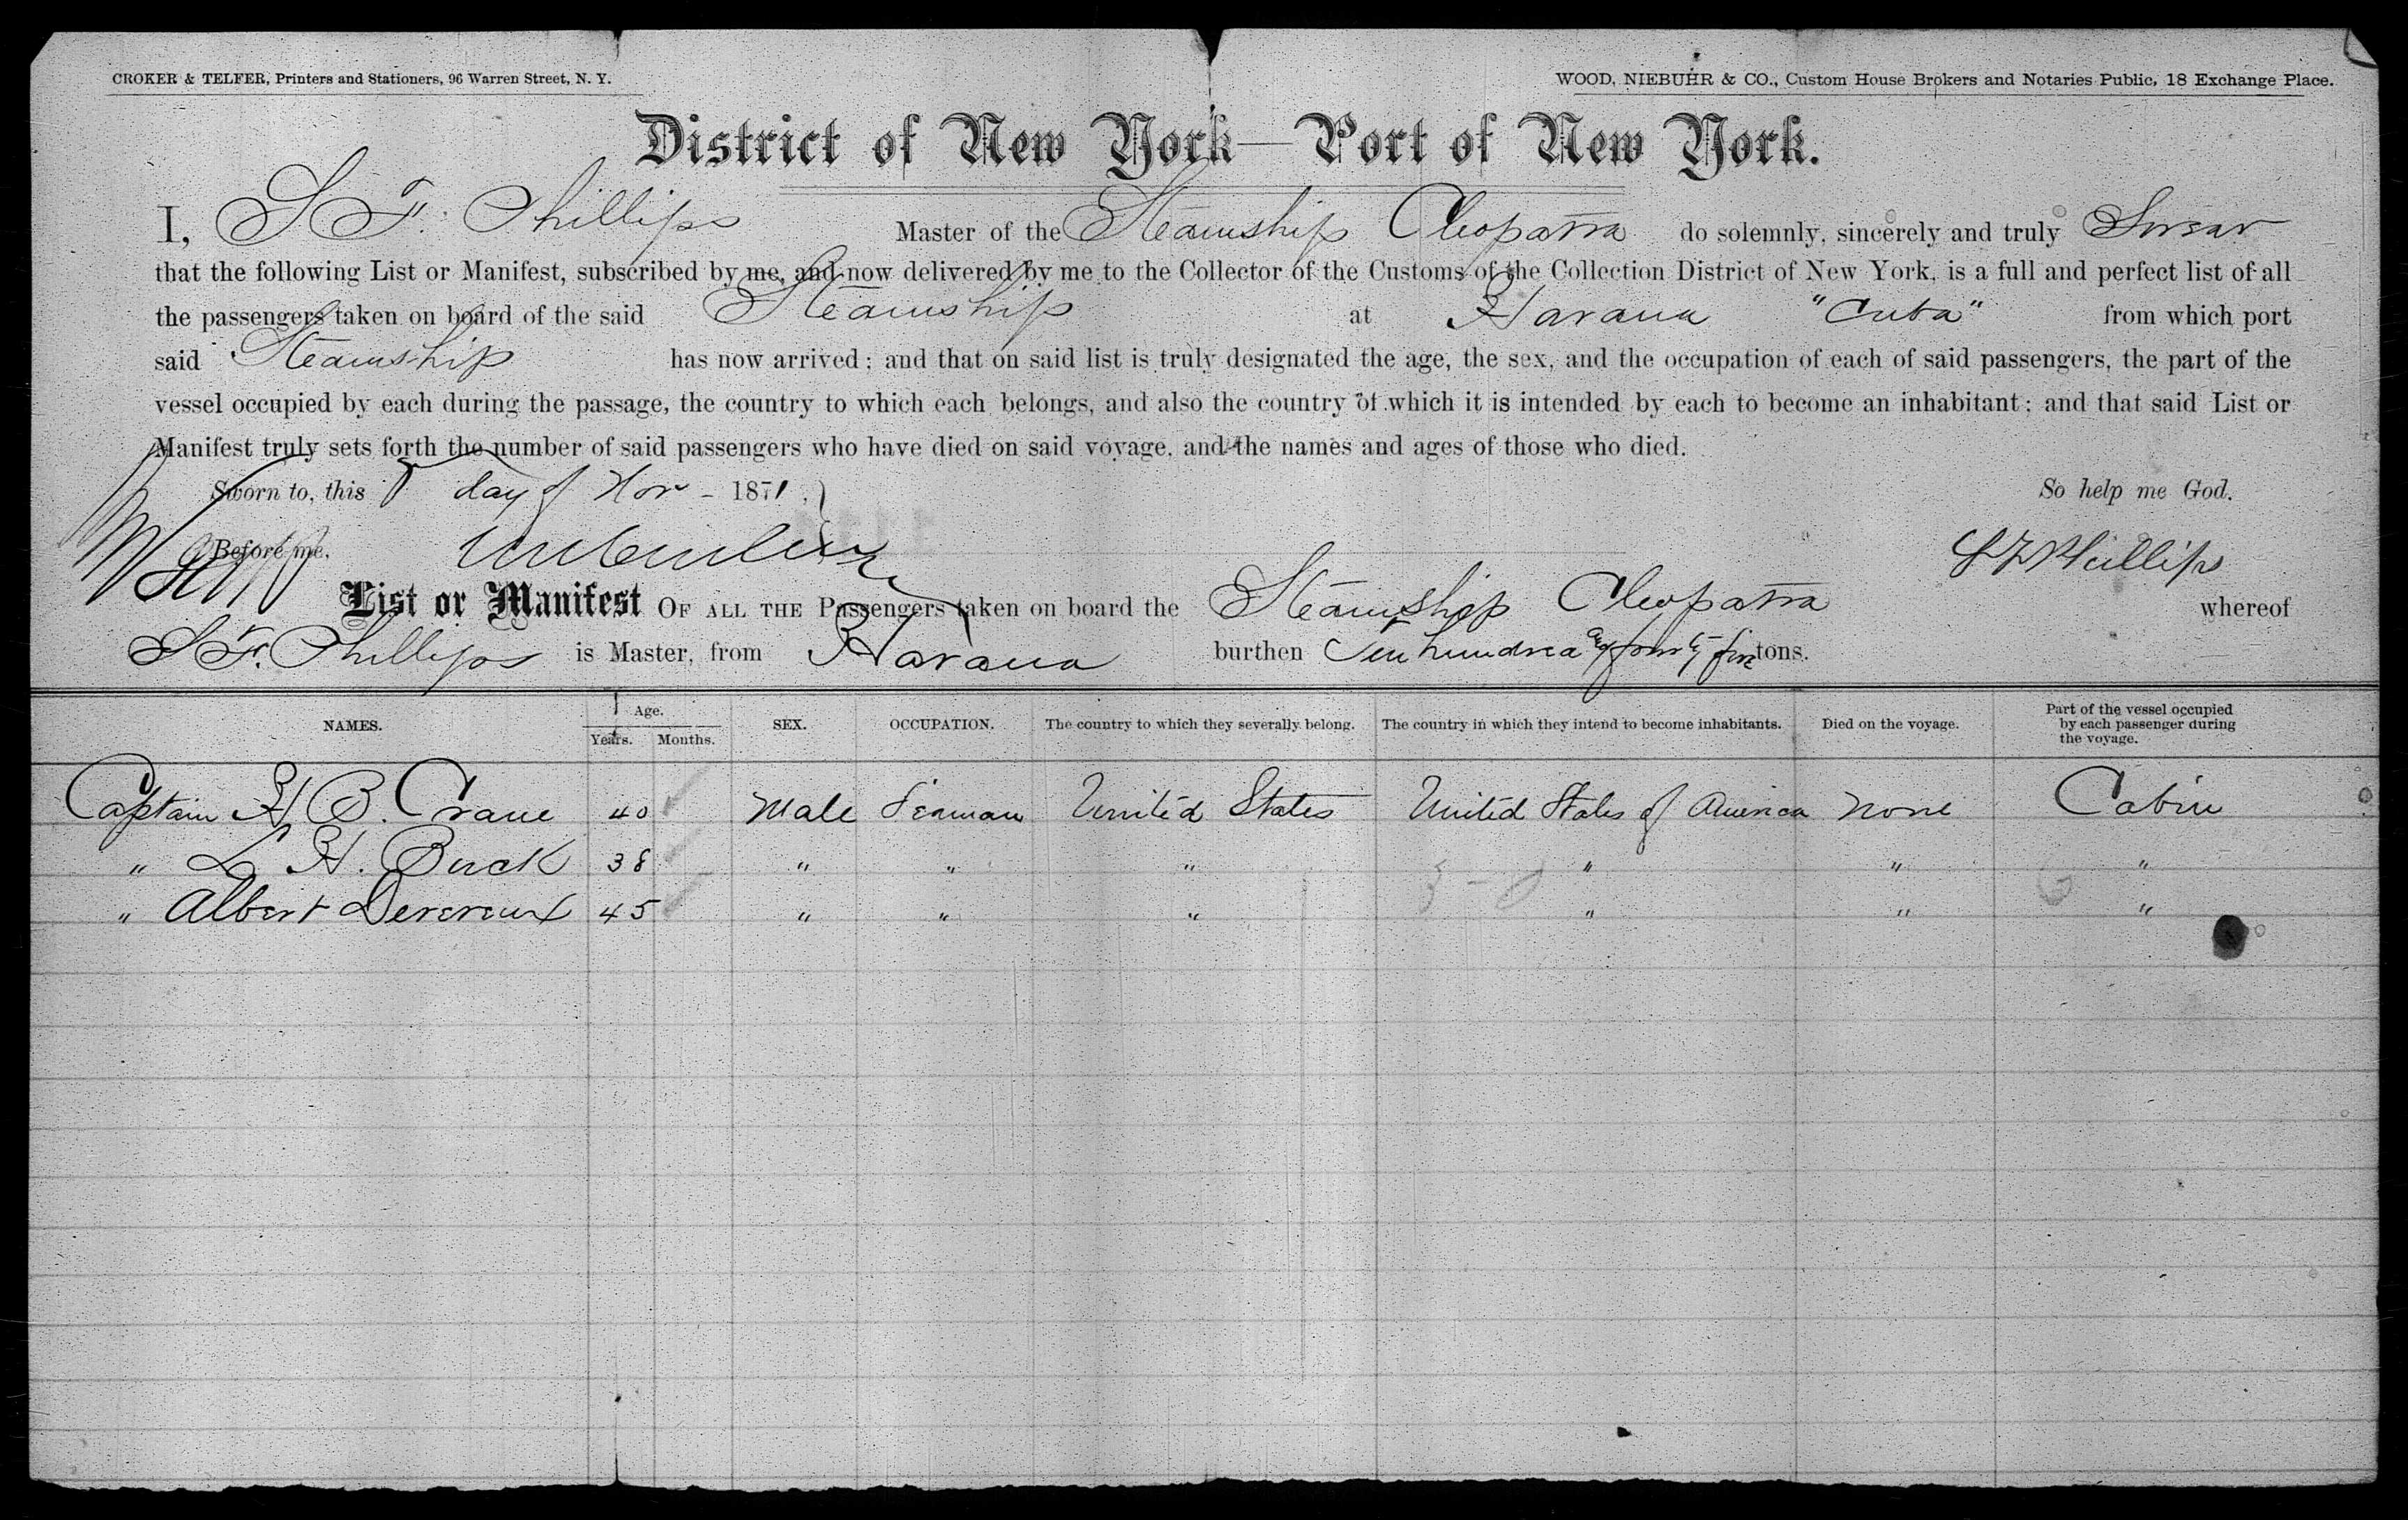 CROKER & TELFER, Printers and Stationers, 96 Warren Street, N. Y.
WOOD, NIEBUHR & CO., Custom House Brokers and Notaries Public, 18 Exchange Place.
District of New York—Port of New York.
I, S F. Phillips Master of the Steamship Cleopatra do solemnly, sincerely and truly Swear
that the following List or Manifest, subscribed by me, and now delivered by me to the Collector of the Customs of the Collection District of New York, is a full and perfect list of all
the passengers taken on board of the said Steamship at Havana "Cuba" from which port
said Steamship has now arrived; and that on said list is truly designated the age, the sex, and the occupation of each of said passengers, the part of the
vessel occupied by each during the passage, the country to which each belongs, and also the country of which it is intended by each to become an inhabitant; and that said List or
Manifest truly sets forth the number of said passengers who have died on said voyage, and the names and ages of those who died.
Sworn to, this day of Nov - 1871. So help me God.
Before me. S F Phillips
List or Manifest OF ALL THE Passengers taken on board the Steamship Cleopatra whereof
S F. Phillips is Master, from Havana burthen Ten hundred and fourty five tons.
NAMES. Age. Years. Months. SEX. OCCUPATION. The country to which they severally belong. The country in which they intend to become inhabitants. Died on the voyage. Part of the vessel occupied by each passenger during the voyage.
Captain H B. Crane 40 Male Seaman United States United States of America None Cabin
" L H. Buck 38 " " " " " "
" Albert Devereux 45 " " " " " "